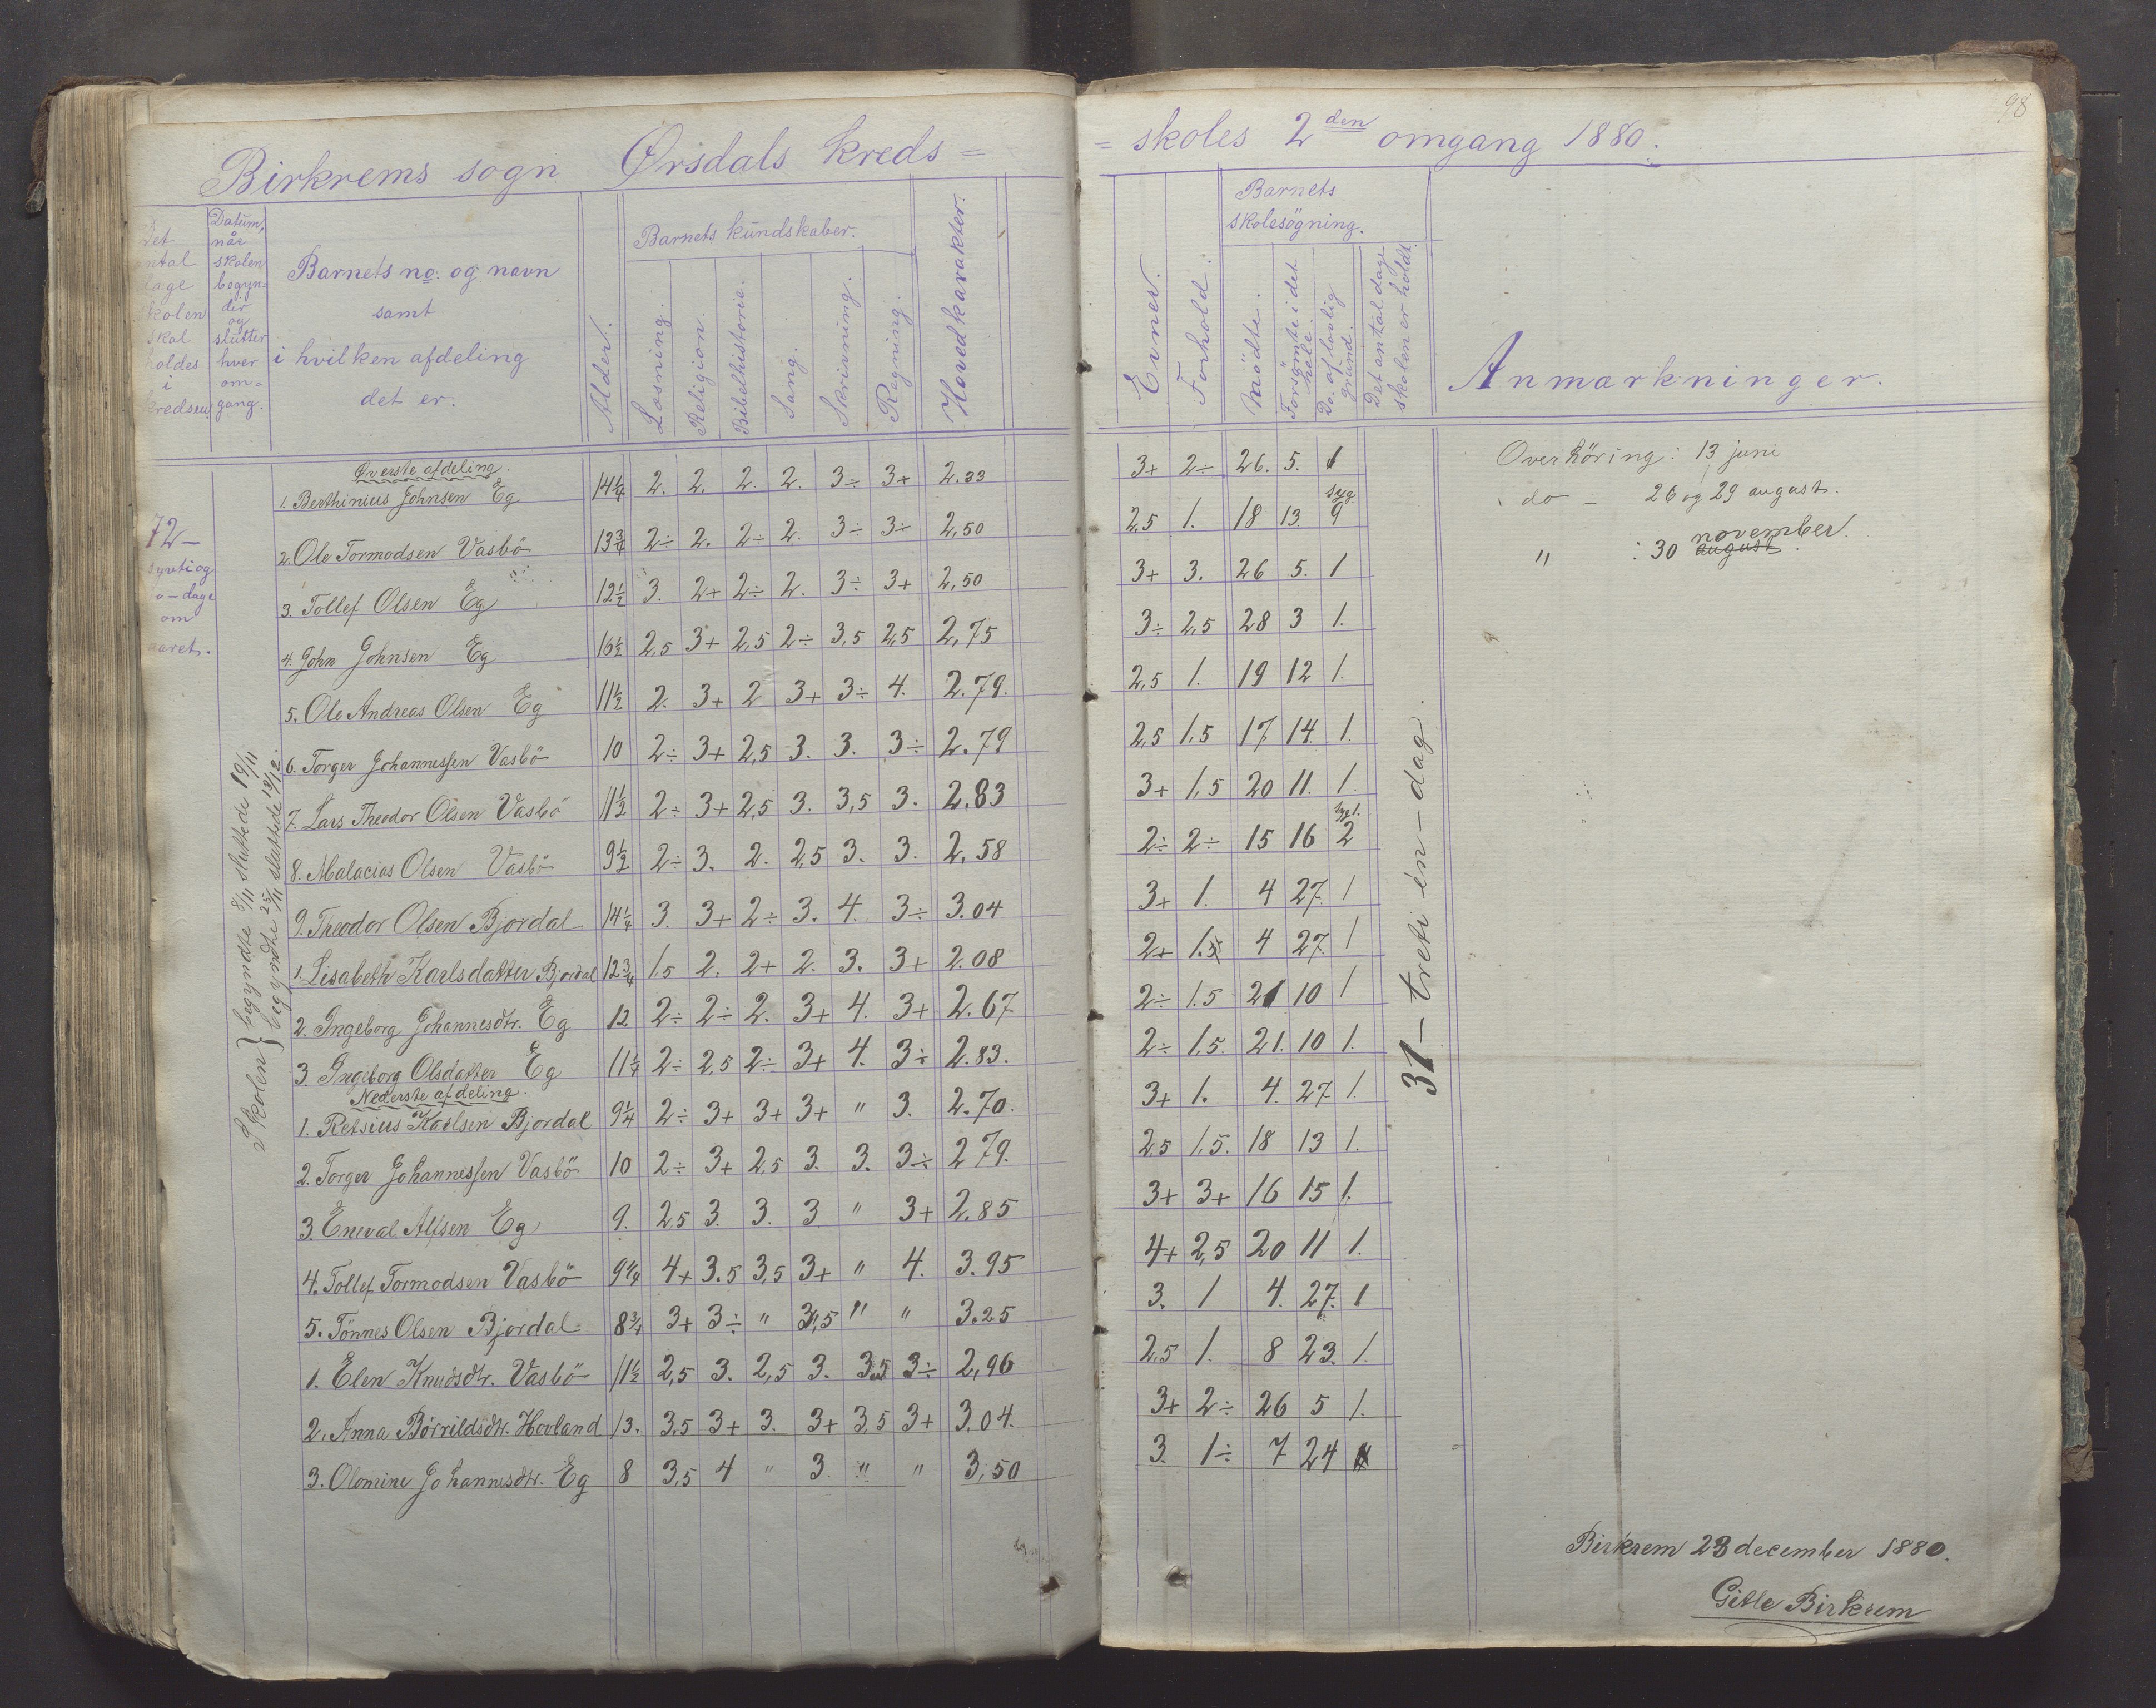 98
Birkrems sogn Ørsdals kreds =
= skoles 2den omgang 1880.
Det
antal
dage
skolen
skal
holdes
i
kredsen
Datum,
når
skolen
begyn=
der
og
slutter
hver
om=
gang.
Barnets no. og navn
samt
i hvilken afdeling
det er.
Alder.
Barnets kundskaber.
Læsning.
Religion.
Bibelhistorie.
Sang.
Skrivning.
Regning.
Hovedkarakter.
Evner.
Forhold.
Barnets
skolesögning.
Mödte.
Forsömte i det
hele.
Do. af lovlig
grund.
Det antal dage
skolen er holdt.
Anmærkninger.
72 –
syvti og
to – dage
om
aaret.
Skolen } begyndte 8/11 sluttede 19/11
begyndte 25/11 sluttede 13/12.
Överste afdeling.
1. Berthinius Johnsen Eg 14 1/4 2. 2. 2. 2. 3÷ 3+ 2.33 3+ 2÷ 26. 5. 1
2. Ole Tormodsen Vasbö 13 3/4 2÷ 2. 2÷ 2. 3÷ 3÷ 2,50 2,5 1. 18 13. syg. 9
3. Tollef Olsen Eg 12 1/2 3. 2+ 2÷ 2. 3÷ 3+ 2,50 3+ 3. 26 5. 1
4. John Johnsen Eg 16 1/2 2,5 3+ 2,5 2÷ 3,5 2,5 2,75 3÷ 2,5 28 3 1.
5. Ole Andreas Olsen Eg 11 1/2 2. 3+ 2 3+ 3÷ 4. 2.79. 2,5 1. 19 12 1.
6. Torger Johannessen Vasbö 10 2÷ 3+ 2,5 3. 3. 3÷ 2.79 2,5 1,5 17 14. 1.
7. Lars Theodor Olsen Vasbö 11 1/2 2÷ 3+ 2,5 3. 3,5 3. 2.83 3+ 1,5 20 11. 1.
8. Malacias Olsen Vasbö 9 1/2 2÷ 3. 2. 2,5 3. 3. 2.58 2÷ 2÷ 15 16 2
9. Theodor Olsen Bjordal 14 1/4 3. 3+ 2÷ 3. 4. 3÷ 3.04 3+ 1. 4 27. 1
1. Lisabeth Karlsdatter Bjordal 12 3/4 1.5 2. 2+ 2. 3. 3+ 2.08 2+ 1.5 4 27. 1
2. Ingeborg Johannesdtr. Eg 12 2÷ 2÷ 2. 3+ 4. 3+ 2.67 2÷ 1.5 21 10 1
3. Ingeborg Olsdatter Eg 11 1/4 2÷ 2,5 2÷ 3+ 4. 3÷ 2.83. 2÷ 1,5. 21. 10 1.
Nederste afdeling.
1. Retsius Karlsen Bjordal 9 1/4 2÷ 3+ 3+ 3+ " 3. 2.70. 3+ 1. 4. 27. 1.
2. Torger Johannessen Vasbö 10 2÷ 3+ 2,5 3. 3. 3÷ 2 79. 2,5 1,5. 18 13 1.
3. Eneval Alfsen Eg 9. 2,5 3. 3. 3 " 3+ 2.85 3+ 3+ 16 15 1.
4. Tollef Tormodsen Vasbö 9 1/4 4+ 3.5 3,5 3+ " 4. 3.95 4+ 2,5 20 11 1.
5. Tönnes Olsen Bjordal 8 3/4 3+ 3÷ " 3,5 " " 3.25 3. 1 4. 27. 1
1. Elen Knudsdtr. Vasbö 11 1/2 2,5 3. 2,5 3. 3,5 3÷ 2,96 2,5 1. 8 23. 1.
2. Anna Börrildsdtr. Hovland 13. 3,5 3+ 3. 3+ 3,5 3+ 3.04. 3+ 2÷ 26 5 1.
3. Olomine Johannesdtr. Eg 8 3,5 4 " 3. " " 3,50 3. 1÷ 7 24
31 – treti én – dag.
Overhöring: 13 juni
do – 26 og 29 august.
" : 30 august november.
Birkrem 23 december 1880.
Gitle Birkrem